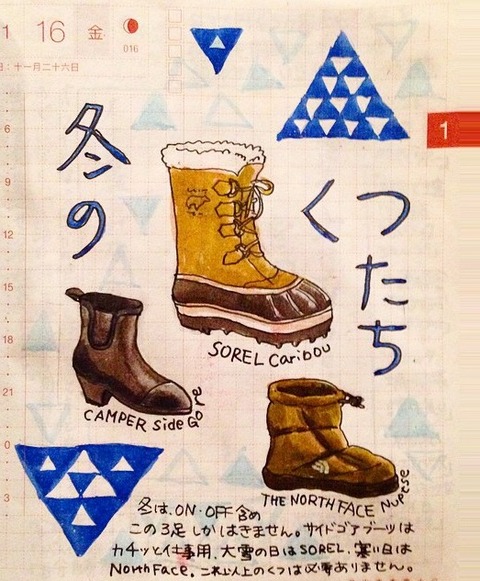 1 16 金
016
日：十一月二十六日
1
6
9
12
15
18
21
0
3
冬の
くつたち
SOREL Caribou
CAMPER Side Gore
THE NORTH FACE Nupese
冬は、ON・OFF 含め
この3足しかはきません。サイドゴアブーツは
カチッと仕事用、大雪の日はSOREL、寒い日は
North Face。これ以上のくつは必要ありません。